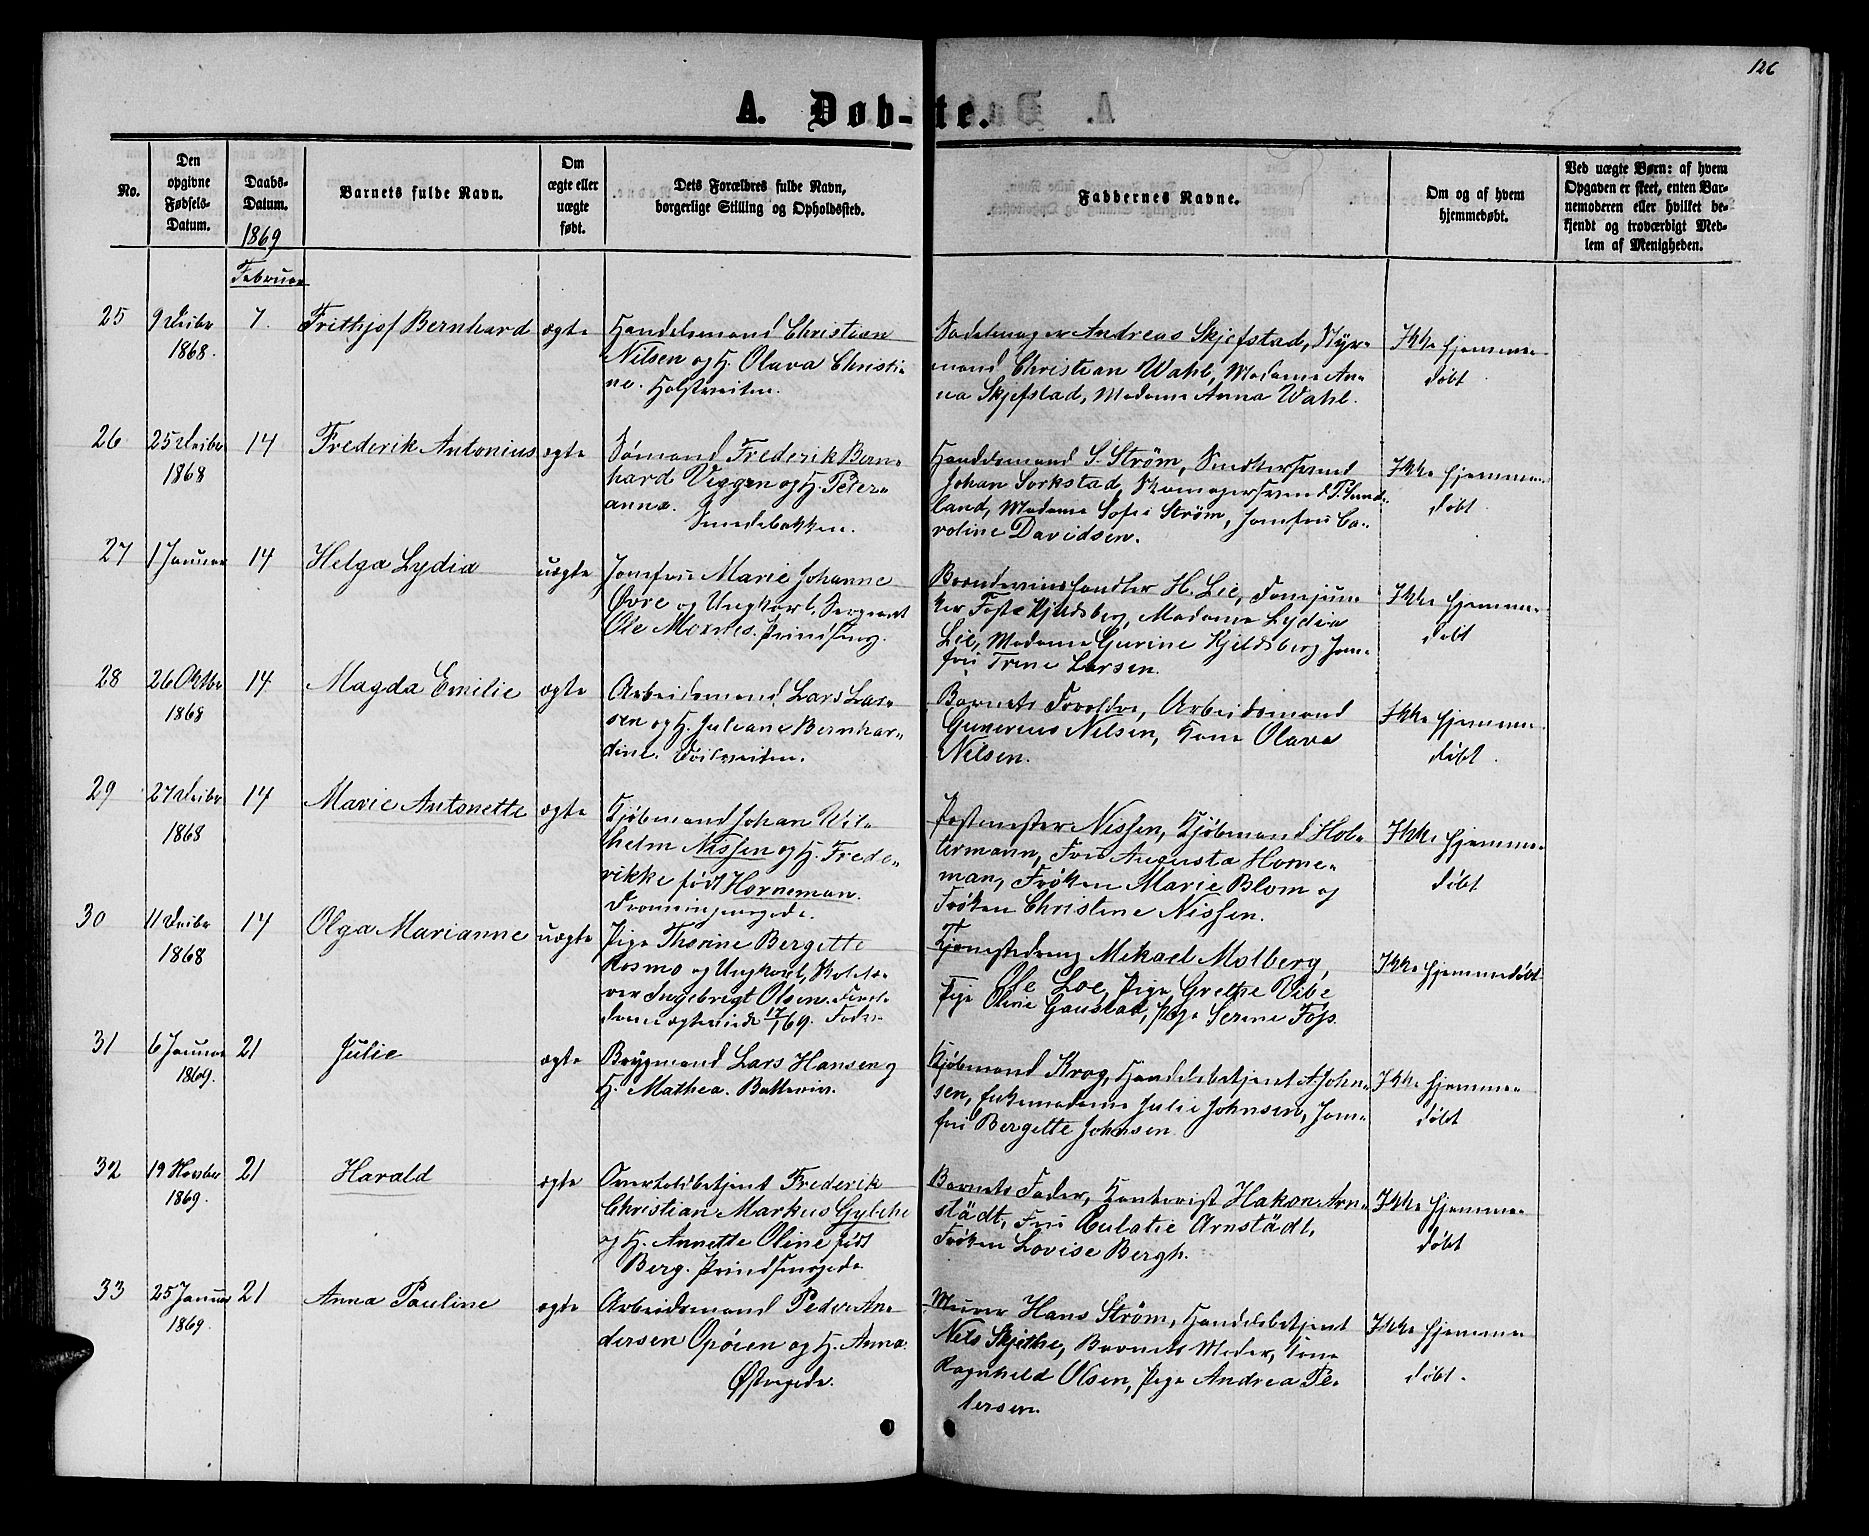 126
A. Døb-te.
No.
Den opgivne Fødsels-Datum.
Daabs-Datum.
1869
Barnets fulde Navn.
Om ægte eller uægte født.
Dets Forældres fulde Navn, borgerlige Stilling og Opholdssted.
Faddernes Navne.
Om og af hvem hjemmedøbt.
Ved uægte Børn: af hvem Opgaven er skeet, enten Barnemoderen eller hvilket bekjendt og troværdigt Medlem af Menigheden.
Februar
25 9 Decbr 7. Frithjof Bernhard ægte Handelsmand Christian
1868.
Nilsen og H. Olava Christi-
ne. Holstveiten.
Sadelmager Andreas Skjefstad, Styr-
mand Christian Wahl, Madame An-
na Skjefstad, Madame Anna Wahl.
Ikke hjemme-
døbt.
26 25 Decbr 14 Frederik Antonius ægte Sømand Frederik Bern-
1868
hard Viggen og H. Peter-
anna.
Smedebakken.
Handelsmand S. Strøm, Snedkersvend
Johan Sorkstad, Skomagersvend P. Sund-
land, Madame Sofie Strøm, Jomfru Ca-
roline Davidsen.
Ikke hjemme-
døbt.
27 1 Januar 14 Helga Lydia uægte Jomfru Marie Johanne
Øvre og Ungkarl, Sergeant
Ole Moxnes. Prindsensg.
Brændeviinshandler H. Lie, Fanejun-
ker Kjeldsberg, Madame Lydia
Lie, Madame Gurine Kjeldsberg Jom-
fru Trine Larsen.
Ikke hjemme-
døbt
28 26 Oktbr 14. Magda Emilie ægte Arbeidsmand Lars Lar-
1868
sen og H. Juliane Bernhar-
dine.
Barnets Forældre, Arbeidsmand
Gunerius Nilsen, Kone Olava
Nilsen.
Ikke hjemme-
døbt.
29 27 Decbr 14 Marie Antonette ægte Kjøbmand Johan Wil-
1868
helm Nissen og H. Frede-
rikke født Horneman.
Dronningensgade.
Postmester Nissen, Kjøbmand Hol-
termann, Fru Augusta Horne-
man, Frøken Marie Blom og
Frøken Christine Nissen.
Ikke hjemme-
døbt
30 11 Decbr 14 Olga Marianne uægte Pige Thorine Bergette
1868
Rosmo og Ungkarl,
Ingebrigt Olsen.
17/1 69.
Tjenestedreng Mikael Molberg,
Ole Loe, Pige Grethe Vibe
Pige Oline Gaustad, Pige Serine Foss.
Ikke hjemmedøbt
31 6 Januar 21 Julie ægte Brygmand Lars Hansen og
1869.
H. Mathea. Batteriet.
Kjøbmand Krog, Handelsbetjent A John-
sen, Enkemadame Julie Johnsen, Jom-
fru Bergette Johnsen
Ikke hjemme-
døbt
32 19 Novbr 21 Harald ægte Overtoldbetjent Frederik
1869.
Christian Markus Gylche
og H. Annette Oline født
Berg. Prindsensgade
Barnets Fader, Kontorist Hakon Arn-
städt, Fru Eulalie Arnstädt,
Frøken Lovise Bergh.
Ikke hjemme-
døbt
33 25 Januar 21 Anna Pauline ægte Arbeidsmand Peder An-
1869.
dersen Opøien og H. Anna.
Østregade.
Murer Hans Strøm, Handelsbetjent
Nils Skjethe, Barnets Moder, Kone
Ragnhild Olsen, Pige Andrea Pe-
tersen.
Ikke hjemme-
døbt.